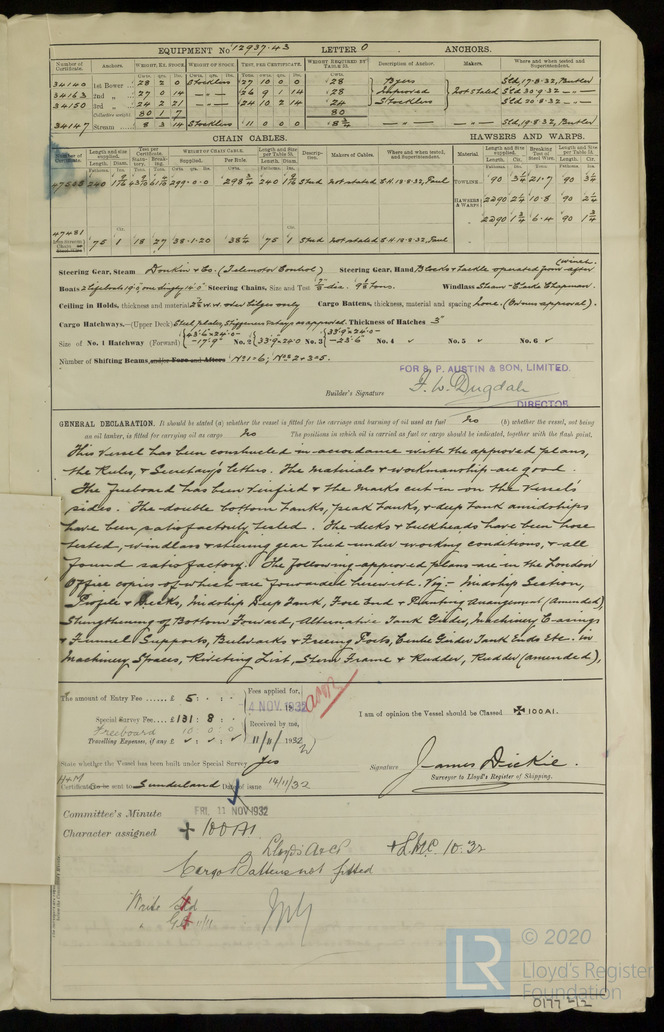 EQUIPMENT No 12937.43 LETTER O ANCHORS.
Number of Certificate. Anchors. WEIGHT, EX. STOCK. WEIGHT OF STOCK. TEST, PER CERTIFICATE. WEIGHT REQUIRED BY TABLE 31. Description of Anchor. Makers. Where and when tested and Superintendent.
34140 1st Bower 28 2 0 Stockless 27 10 0 0 28 Byers Sld. 17.8.32, Butler
34163 2nd „ 27 0 14 26 9 1 14 28 Improved Not stated Sld. 30.9.32
34150 3rd „ 24 2 21 24 10 2 14 24 Stockless Sld. 20.8.32
Collective weight 80 1 7 80
34147 Stream 8 3 14 Stockless 11 0 0 0 8¾ Sld. 19.8.32, Butler
CHAIN CABLES. HAWSERS AND WARPS.
Number of Certificate. Length and size supplied. Test per Certificate. WEIGHT OF CHAIN CABLE. Length and Size per Table 31. Description. Makers of Cables. Where and when tested, and Superintendent. Material Length and Size supplied. Breaking Test of Steel Wire. Length and Size per Table 31.
240 299.0.0 298¾ 240 Stud Not stated 18.8.32, Paul TOWLINE 90 3¼ 21.7 90 3¼
HAWSERS & WARPS 2@90 2¼ 10.8 90 2¼
2@90 1¾ 6.4 90 1¾
47481
75 1 18 27 38.1.20 38¼ 75 1 Stud Not stated 18.8.32, Paul
Steering Gear, Steam Donkin & Co. (Telemotor Control) Steering Gear, Hand Blocks & tackle operated from after winch.
Boats 2 Lifeboats Steering Chains, Size and Test dia. tons. Windlass Clarke Chapman.
Ceiling in Holds, thickness and material 2½" w.w. over bilges only Cargo Battens, thickness, material and spacing None. (Owners approval).
Cargo Hatchways.—(Upper Deck) Steel plates, Stiffeners & stays as approved. Thickness of Hatches 3"
Size of No. 1 Hatchway (Forward) 43'-6" x 24'-0" - 17'-9" No. 2 33'.9" x 24.0 No. 3 33'.9" x 24'-0" - 23'-6" No. 4 ✓ No. 5 ✓ No. 6 ✓
Number of Shifting Beams, and/or Fore and Afters No1=6; Nos 2+3=5.
FOR S. P. AUSTIN & SON, LIMITED.
Builder's Signature F. W. Dugdale
DIRECTOR.
GENERAL DECLARATION. It should be stated (a) whether the vessel is fitted for the carriage and burning of oil used as fuel No (b) whether the vessel, not being
an oil tanker, is fitted for carrying oil as cargo No The positions in which oil is carried as fuel or cargo should be indicated, together with the flash point.
This Vessel has been constructed in accordance with the approved plans,
the Rules, & Secretary's letters. The materials & workmanship are good.
The freeboard has been verified & the marks cut in on the Vessel's
sides. The double bottom tanks, peak tanks, & deep tank amidships
have been satisfactorily tested. The decks & bulkheads have been hose
tested, windlass & steering gear tried under working conditions, & all
found satisfactory. The following approved plans are in the London
Office copies of which are forwarded herewith. Viz:- Midship Section,
Profile & Decks, Midship Deep Tank, Fore End & Panting Arrangement (Amended),
Strengthening of Bottom Forward, Alternative Tank Girder, Machinery Casings
& Funnel Supports, Bulwarks & Freeing Ports, Centre Girder Tank Ends Etc. in
Machinery Spaces, Riveting List, Stern Frame & Rudder, Rudder (amended),
The amount of Entry Fee ...... £ 5 : . : . Fees applied for,
4 NOV. 1932
Special Survey Fee.... £131 : 8 : . Received by me,
Freeboard 10 : 0 : 0
Travelling Expenses, if any £ ✓ : ✓ : ✓ 11/11/1932
I am of opinion the Vessel should be Classed ✠100A1.
State whether the Vessel has been built under Special Survey Yes
Signature James Dickie.
Surveyor to Lloyd's Register of Shipping.
H&M
Certificate to be sent to Sunderland Date of issue 14/11/32
Committee's Minute FRI. 11 NOV 1932
Character assigned + 100A1
Lloyd's A & CP +LMC 10.32
Cargo Battens not fitted
Write Sld
„ Gls 11/11
LR
© 2020
Lloyd's Register
Foundation
0177 2/2